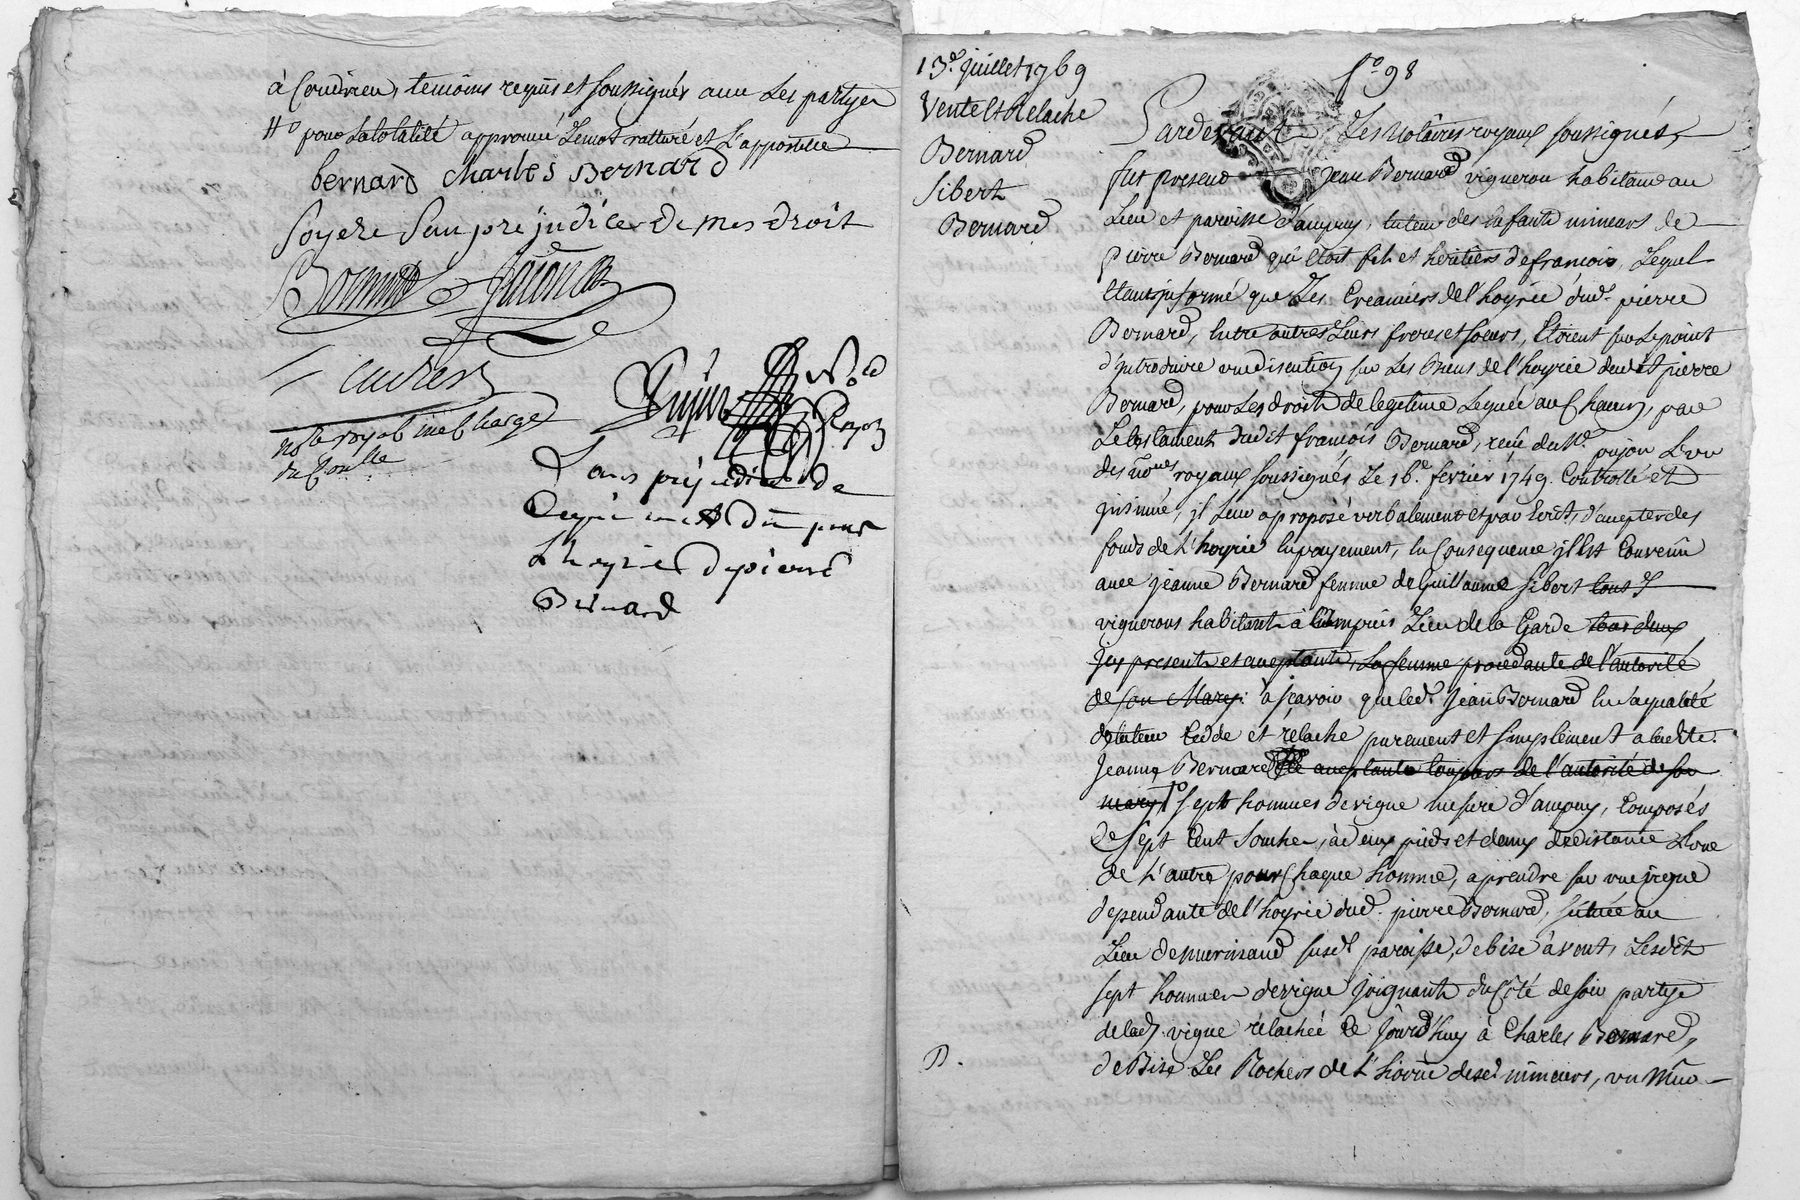 à Condrieu, temoins requis et soussignés avec les partyes
pour la lolalité approuvé le motratturé et l'appostille
bernard charles Bernard
Soyere Sans prejudice de mes droit
notre royal in charge
Pujin
Sans prejudice de
pour
L'hoyrie de pierre
Bernard
13e. Juillet 1769
Vente et Relache
Bernard
Sibert
Bernard
fo. 98
Pardevant Les Notaires royaux soussignés,
fut present Jean Bernard vigneron habitand au
Lieu et paroisse d'ampuy, tuteur des Enfants mineurs de
pierre Bernard qui étoit fils et héritiers de françois, Lequel
étant informé que Les Creanciers de l'hoyrie dud. pierre
Bernard, Entre autres Leurs freres et soeurs, Etoient sur le point
d'introduire une discution sur Les Biens de l'hoyrie dudit pierre
Bernard, pour Les droits de legitime Leguée au Chacun, par
Le testament dudit françois Bernard, reçu du Me. pujon L'un
des Nores royaux soussignés Le 16e. fevrier 1749. Controllé et
insinué, il Leur a proposé verbalement et par Ecrit, d'accepter des
fonds de L'hoyrie En payement, En Consequence il Est Convenu
avec jeanne Bernard femme de Guillaume Sibert tous d.
vignerons habitants à Lieu de la Garde tous deux
Icy presents et acceptants, La femme procedante de l'autorité
de son Mary. à sçavoir, que led. Jean Bernard En sa qualité
de tuteur Cedde et relache purement et simplement a ladite.
Jeanne Bernard acceptante toujours de l'autorité de son
mary 1o sept hommes de vigne mesure d'ampuy, Composés
de sept Cent Souches, à deux pieds et demy de distance L'une
de L'autre pour Chaque homme, a prendre sur une vigne
dependante de l'hoyrie dud. pierre Bernard, située au
Lieu de susd. paroisse, de bise à vent, Lesdits
sept hommes de vigne Joignants du Côté de soir partye
de lad. vigne relachée Ce Jourd'huy à Charles Bernard,
de Bise Les Rochers de L'hoirie desd. mineurs, un Mur